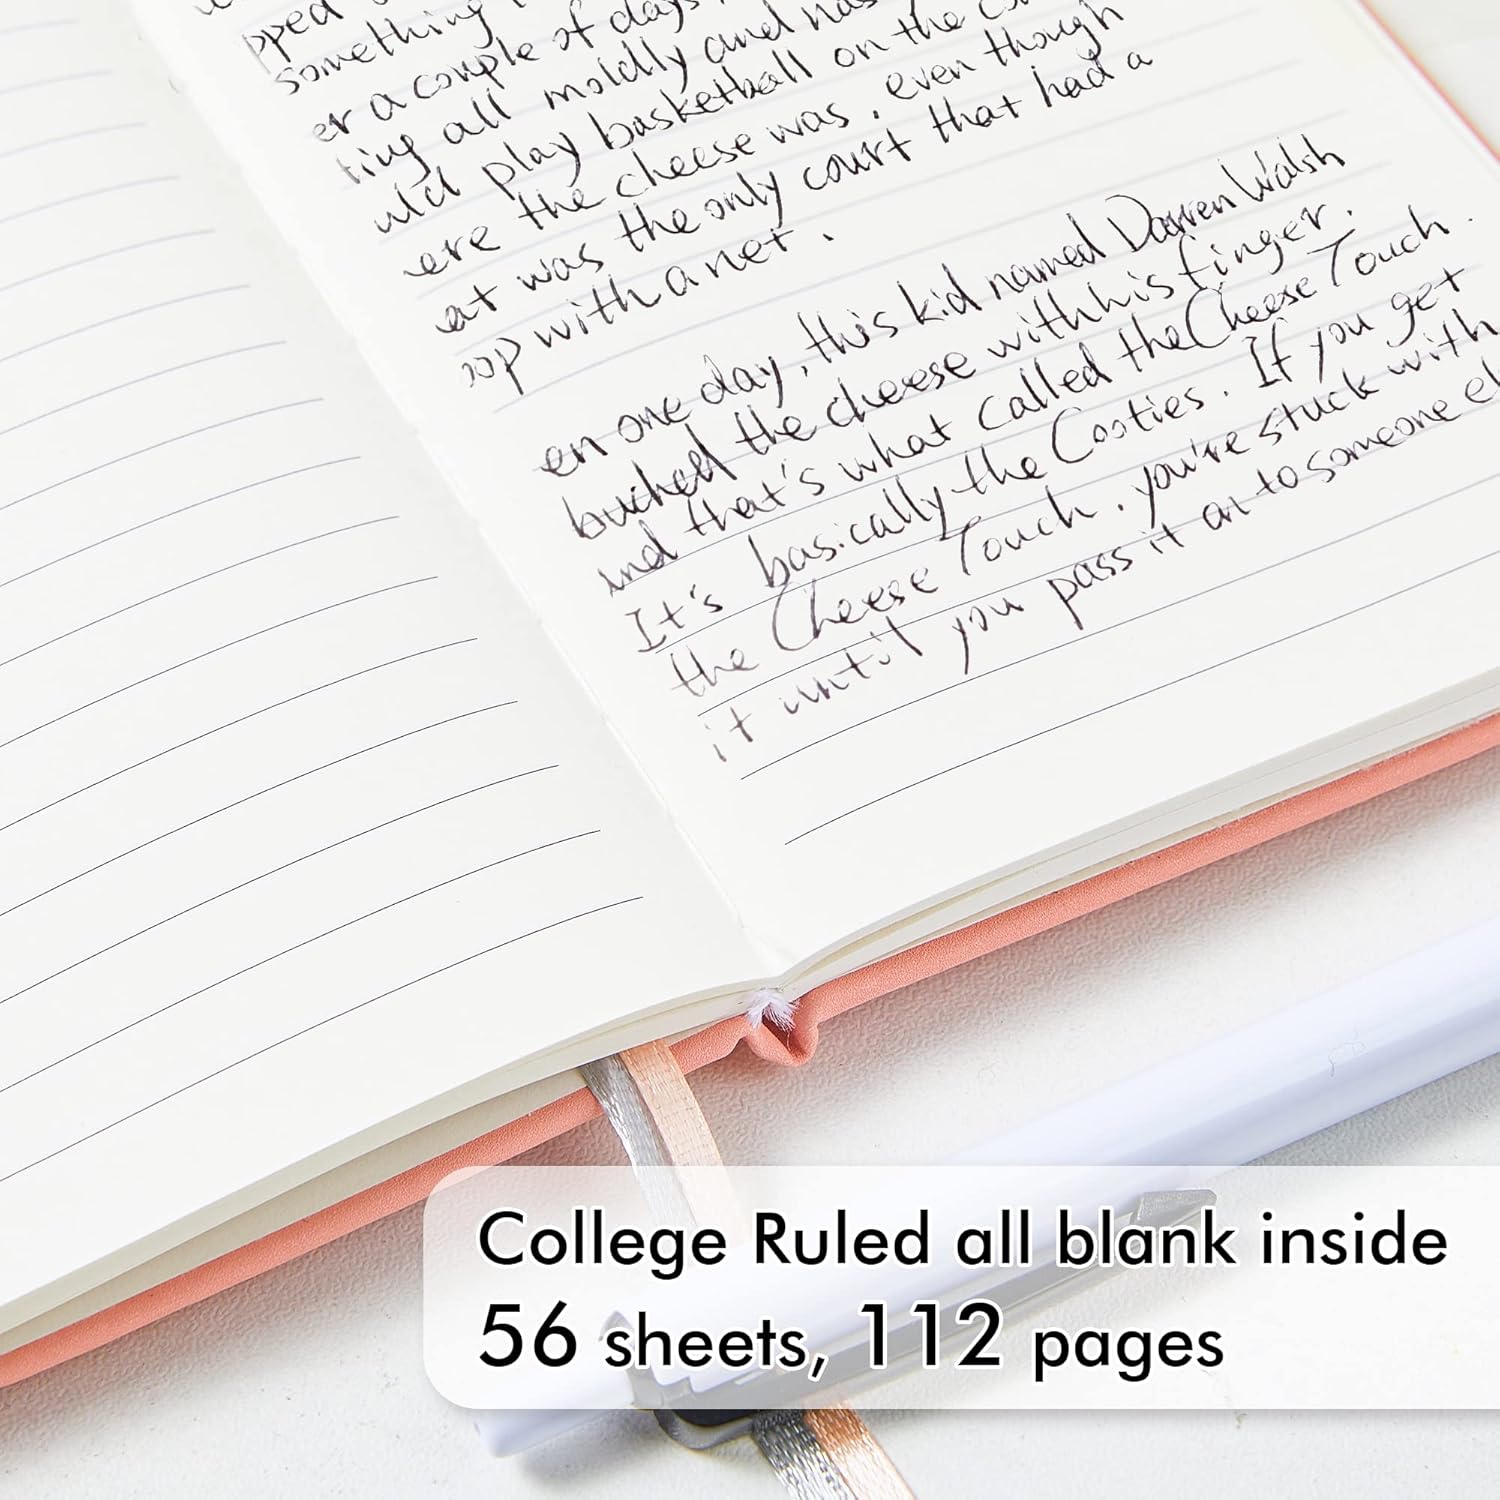 pped
something
er a couple of days
ting all moldly and nas
uld play basketball on the
ere the cheese was, even though
at was the only court that had a
oop with a net.
en one day, this kid named Darren Walsh
the cheese with his finger.
and that's what called the Cheese Touch.
It's basically the Cooties. If you get
the Cheese Touch, you're stuck with
it until you pass it on to someone el
College Ruled all blank inside
56 sheets, 112 pages